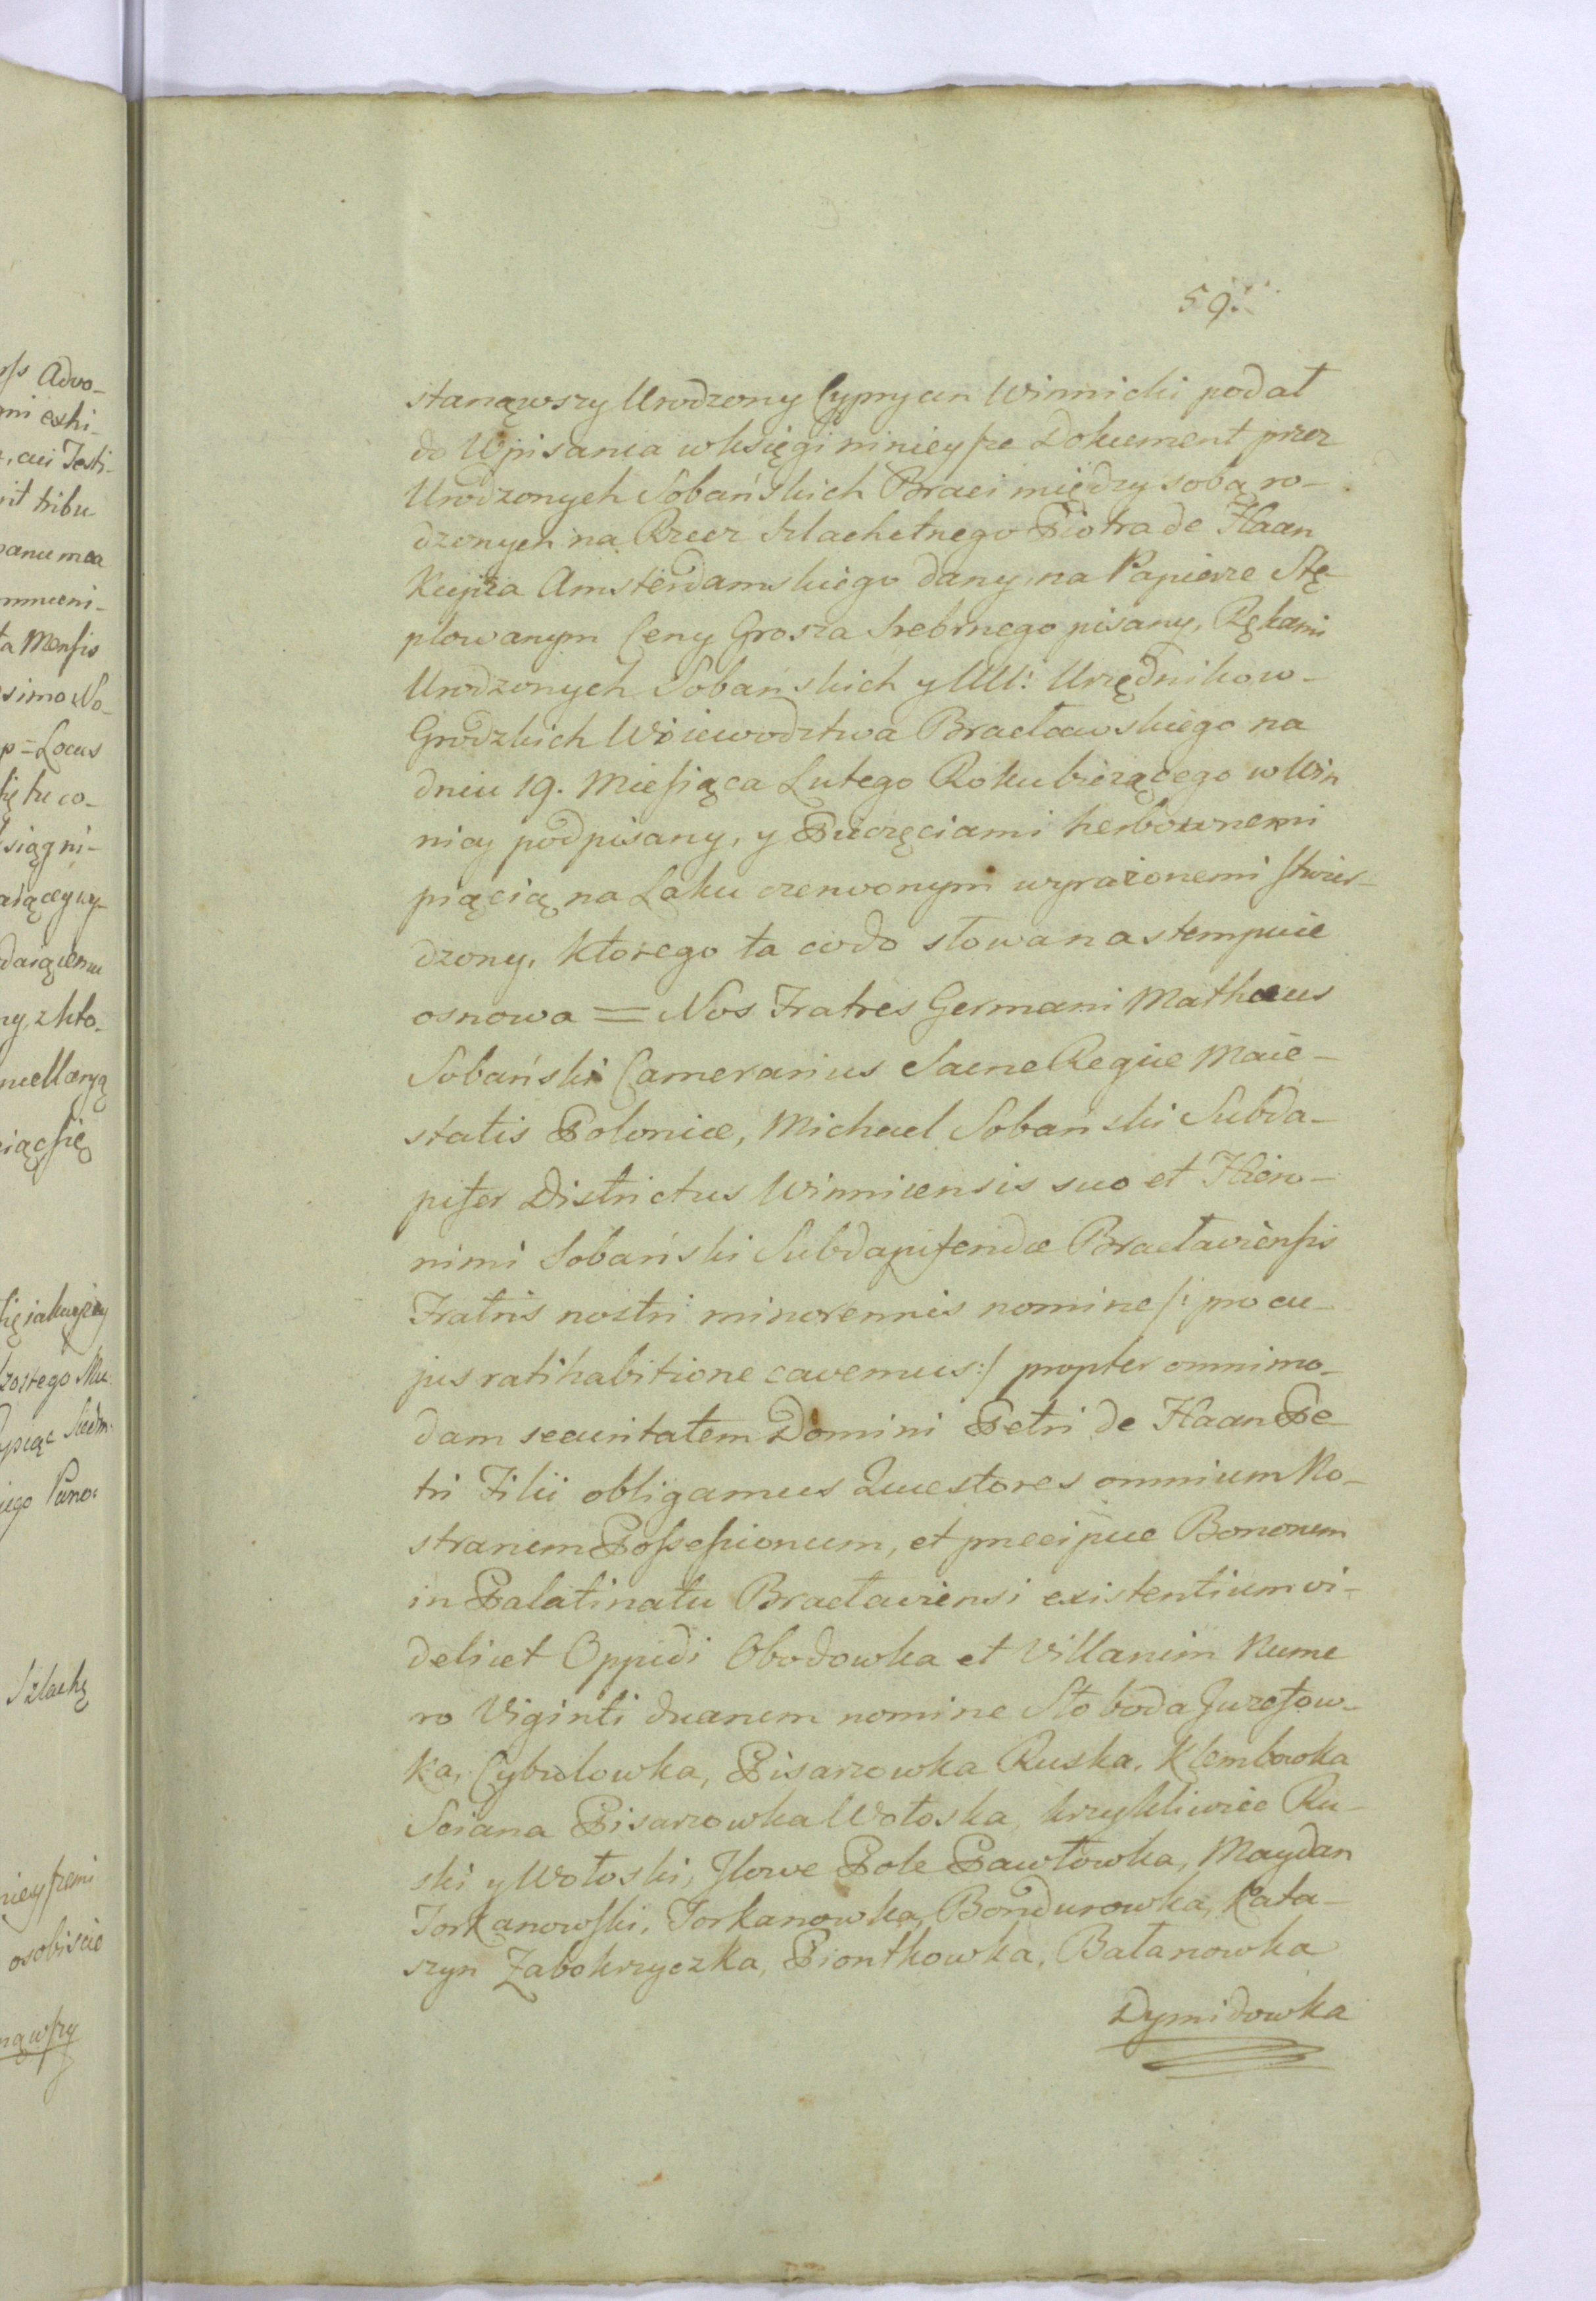 59.
stanąwszy Urodzony Cypryan Winnicki podał
do Wpisania w księgi ninieysze Dokument przez
Urodzonych Sobańskich Braci między sobą ro-
dzonych na Rzecz Szlachetnego Piotra de Haan
Kupca Amsterdamskiego dany, na Papierze Stę-
plowanym Ceny Grosza Srebrnego pisany, Rękami
Urodzonych Sobańskich y UU: Urzędnikow-
Grodzkich Woiewodztwa Bracławskiego na
dniu 19. Miesiąca Lutego Roku bieżącego w Win
nicy podpisany, y Pieczęciami herbownemi
piącią na Laku czerwonym wyrażonemi stwier-
dzony, Ktorego ta co do słowa nastempuie
osnowa = Nos Fratres Germani Mathæus
Sobański Camerarius Sacræ Regiæ Maie-
statis Poloniæ, Michael Sobański Subda-
pifer Districtus Winnicensis suo et Hiero-
nimi Sobański Subdapiferidæ Bracłaviensis
Fratris nostri minorennis nomine /: pro cu-
jus ratihabitione cavemus :/ propter omnimo-
dam securitatem Domini Petri de Haan Pe-
tri Filii obligamus Quæstores omnium No-
strarum Possessionum, et præcipue Bonorum
in Palatinatu Bracłaviensi existentium vi-
delicet Oppidi Obodowka et Villarum Nume
ro Viginti duarum nomine Słoboda Jurzefow-
ka, Cybulowka, Pisarzowka Ruska, Klembowka
Sciana Pisarzowka Wołoska, Krzykliwiec Ru-
ski y Wołoski, Jłowe Pole Pawłowka, Maydan
Torkanowski, Torkanowka, Bondurowka, Kata-
szyn Zabokrzyczka, Piontkowka, Bałanowka
Dymidowka
ss Advo-
mi exhi-
cui Testi-
tribu
Mensis
simo No-
Locus
co-
siąg ni-
się
Szlachę
osobiście